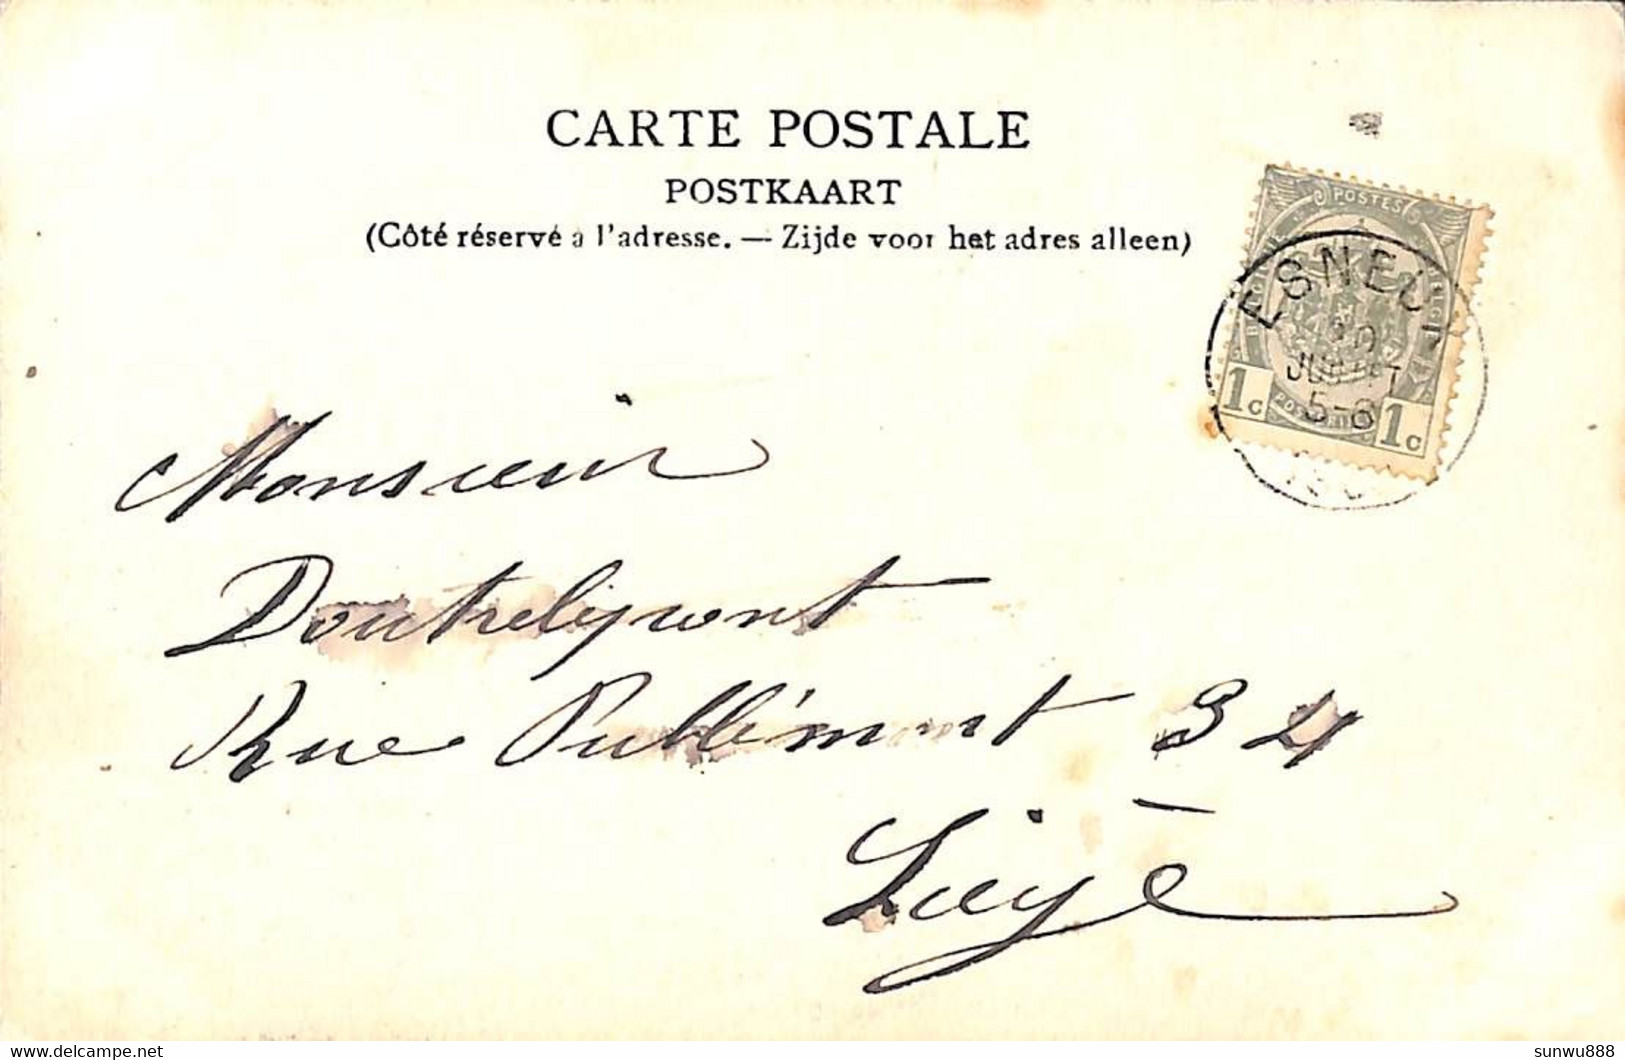 CARTE POSTALE
POSTKAART
(Côté réservé à l'adresse. — Zijde voor het adres alleen)
POSTES
BELGIQUE BELGIË
ESNEUX
JUILLET
5-6
1c 1c
Monsieur
Doutrelepont
Rue 34
Liège
delcampe.net
sunwu888